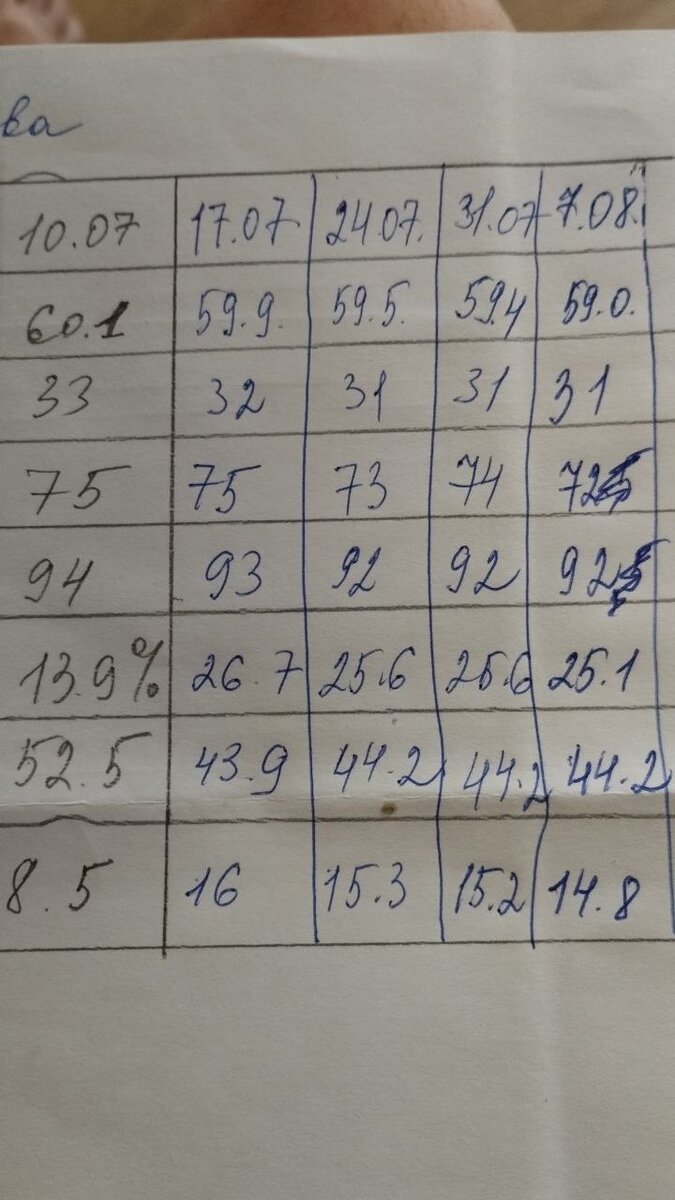 ва
10.07 17.07 24.07. 31.07 7.08.
60.1 59.9. 59.5. 59.4 59.0.
33 32 31 31 31
75 75 73 74 72
94 93 92 92 92
13.9% 26.7 25.6 25.6 25.1
52.5 43.9 44.2 44.2 44.2
8.5 16 15.3 15.2 14.8